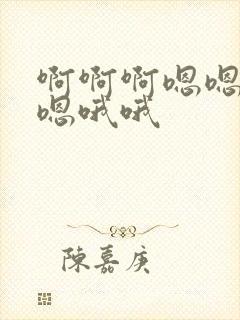 啊啊啊嗯嗯
嗯哦哦
陳嘉庚